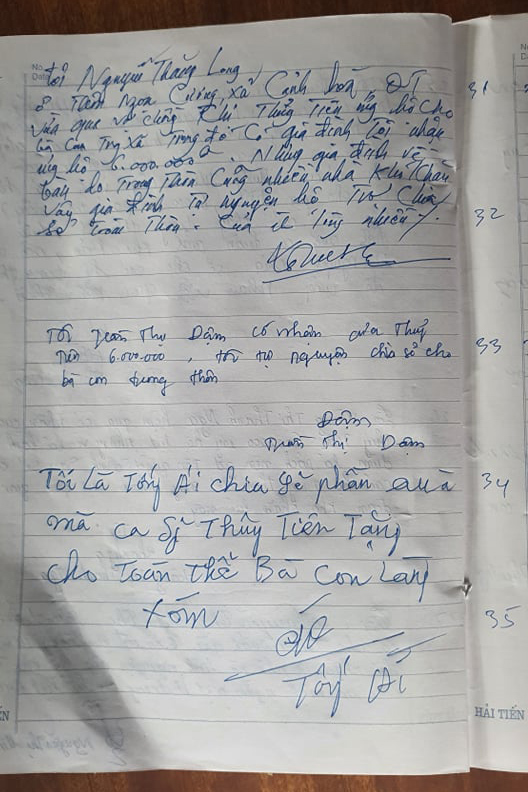 No.
Date
Tôi Nguyễn Thăng Long
ở Thôn Ngọa Cương xã Cảnh hoá QT
vừa qua vợ chồng Khi Thủy Tiên ủng hộ cho
bà con Trong Xã Trong đó Có gia đình Tôi nhận
ủng hộ 6.000.000đ. Nhưng gia đình và
bàn do Trong Thôn Cũng nhiều nhà Khó Khăn
vậy gia đình Tự nguyện hỗ Trợ Chia
sẻ trong Thôn. Của ít lòng nhiều
Tôi Trần Thị Dậm có nhận của Thuỷ
tiên 6.000.000, tôi tự nguyện chia sẻ cho
bà con trong thôn
Dậm
Trần Thị Dậm
Tôi Là Ái chia sẻ phần quà
mà ca Sĩ Thủy Tiên Tặng
cho Toàn Thể Bà Con Làng
xóm
Ái
31
32
33
34
35
HẢI TIẾN